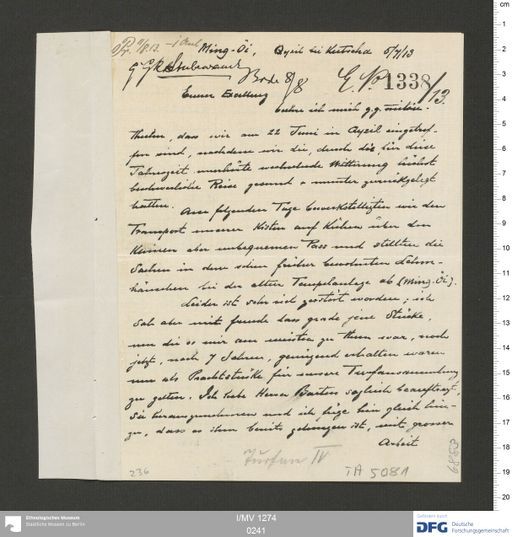 Ming-Öi, Qyzil bei Kutscha 5/7/13
Bode 8/8 E. No. 1338/13.
Euerer Exzellenz
beehre ich mich g.g. mitzu-
theilen, dass wir am 22 Juni in Qyzil eingetrof-
fen sind, nachdem wir die, durch die für diese
Jahreszeit unerhörte wechselnde Witterung
beschwerliche Reise gesund u munter zurückgelegt
hatten.
Am folgenden Tage bewerkstelligten wir den
Transport unserer Kisten auf Kühen über den
kleinen aber unbequemen Pass und stellten die
Sachen in dem schon früher benutzten Lehm-
häuschen bei der alten Tempelanlage ab (Ming-Öi).
Leider ist sehr viel zerstört worden, ich
sah aber mit Freude dass grade jene Stücke,
um die es mir am meisten zu thun war, noch
jetzt, nach 7 Jahren, genügend erhalten waren
um als Prachtstücke für unsere Turfansammlung
zu gelten. Ich habe Herrn Bartus sogleich beauftragt,
sie herauszunehmen und ich füge hier gleich hin-
zu, dass es ihm bereits gelungen ist, mit grosser
Arbeit
Turfan IV
TA 5081
236
I/MV 1274
0241
Ethnologisches Museum
Staatliche Museen zu Berlin
Gefördert durch
DFG Deutsche
Forschungsgemeinschaft
cm
1
2
3
4
5
6
7
8
9
10
11
12
13
14
15
16
17
18
19
20